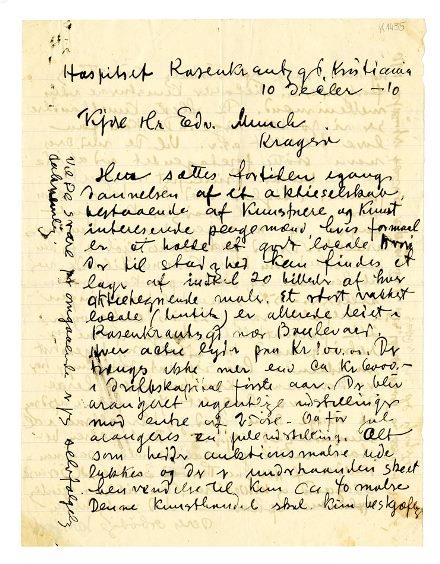 K1435
Hospitset Rosenkrantzg 6, Kristiania
10 December –10
Kjære Hr Edv. Munch
Kragerø
Her sættes fortiden igang
dannelsen af et aktieselskab
bestaaende af Kunstnere og Kunst
interesserede pengemænd, hvis formaal
er at holde et godt locale hvor
der til stadighed kan findes et
lager af indtil 20 billeder af hver
aktietegnende maler. Et stort vakkert
locale (butik) er allerede leiet i
Rosenkrantzgt nær Boulevard.
Hver actie lyder paa Kr 100.00. Der
trengs ikke mer end ca Kr 6000.–
i driftskapital første aar. Der blir
arangeret ugentlige udstillinger
mod entre af 25 öre. Og før jul
arangeres en juleudstilling. Alt
som heder auktionsmalere ude
lykkes og der er underhaanden skeet
henvendelse til kun ca 40 malere
Denne Kunsthandel skal kun beskjæftige
Vil De svare pr omgaaende er jeg selvfølgelig
taknemlig.